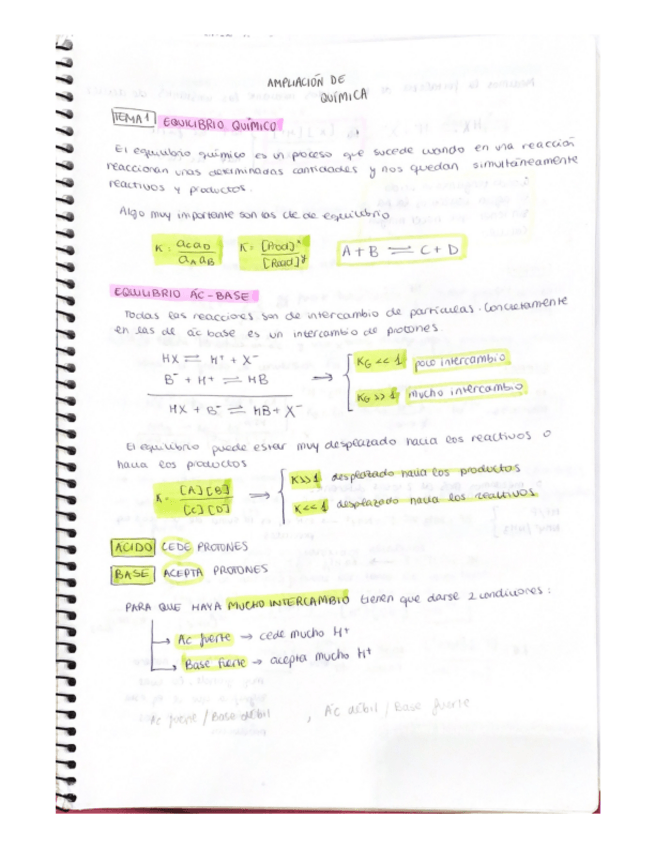 AMPLIACIÓN DE
QUÍMICA
TEMA 1 EQUILIBRIO QUÍMICO
El equilibrio químico es un proceso que sucede cuando en una reacción
reaccionan unas determinadas cantidades y nos quedan simultáneamente
reactivos y productos.
Algo muy importante son las cte de equilibrio
K = aC aD / aA aB K = [Prod]ˣ / [React]ʸ A + B ⇌ C + D
EQUILIBRIO ÁC-BASE
Todas las reacciones son de intercambio de partículas. Concretamente
en las de ác base es un intercambio de protones.
HX ⇌ H⁺ + X⁻
B⁻ + H⁺ ⇌ HB
HX + B⁻ ⇌ HB + X⁻
→ KG << 1 poco intercambio
KG >> 1 mucho intercambio
El equilibrio puede estar muy desplazado hacia los reactivos o
hacia los productos
K = [A][B] / [C][D] ⇒ K>>1 desplazado hacia los productos
K<<1 desplazado hacia los reactivos
ÁCIDO CEDE PROTONES
BASE ACEPTA PROTONES
PARA QUE HAYA MUCHO INTERCAMBIO tienen que darse 2 condiciones:
→ Ac fuerte → cede mucho H⁺
→ Base fuerte → acepta mucho H⁺
Ac fuerte / Base débil , Ac débil / Base fuerte